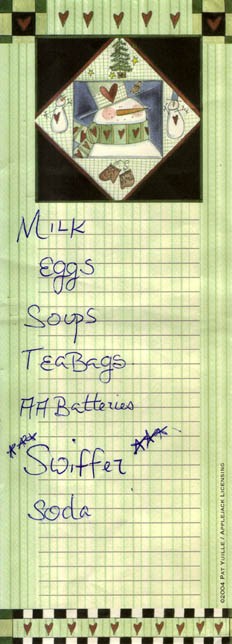 Milk
Eggs
Soups
TeaBags
AA Batteries
***Swiffer***
Soda
©2004 Pat Yuille / Applejack Licensing